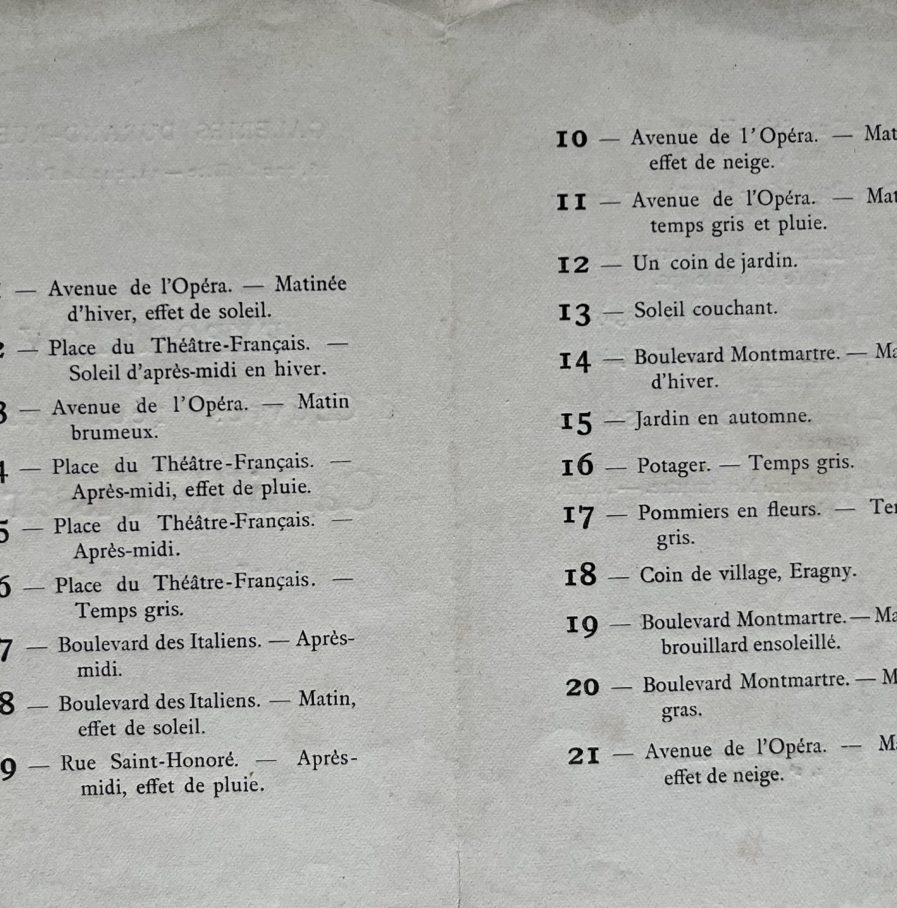 — Avenue de l'Opéra. — Matinée
d'hiver, effet de soleil.
2 — Place du Théâtre-Français. —
Soleil d'après-midi en hiver.
3 — Avenue de l'Opéra. — Matin
brumeux.
4 — Place du Théâtre-Français. —
Après-midi, effet de pluie.
5 — Place du Théâtre-Français. —
Après-midi.
6 — Place du Théâtre-Français. —
Temps gris.
7 — Boulevard des Italiens. — Après-
midi.
8 — Boulevard des Italiens. — Matin,
effet de soleil.
9 — Rue Saint-Honoré. — Après-
midi, effet de pluie.
10 — Avenue de l'Opéra. — Mat
effet de neige.
11 — Avenue de l'Opéra. — Mat
temps gris et pluie.
12 — Un coin de jardin.
13 — Soleil couchant.
14 — Boulevard Montmartre. — Ma
d'hiver.
15 — Jardin en automne.
16 — Potager. — Temps gris.
17 — Pommiers en fleurs. — Te
gris.
18 — Coin de village, Eragny.
19 — Boulevard Montmartre. — Ma
brouillard ensoleillé.
20 — Boulevard Montmartre. — M
gras.
21 — Avenue de l'Opéra. — M
effet de neige.